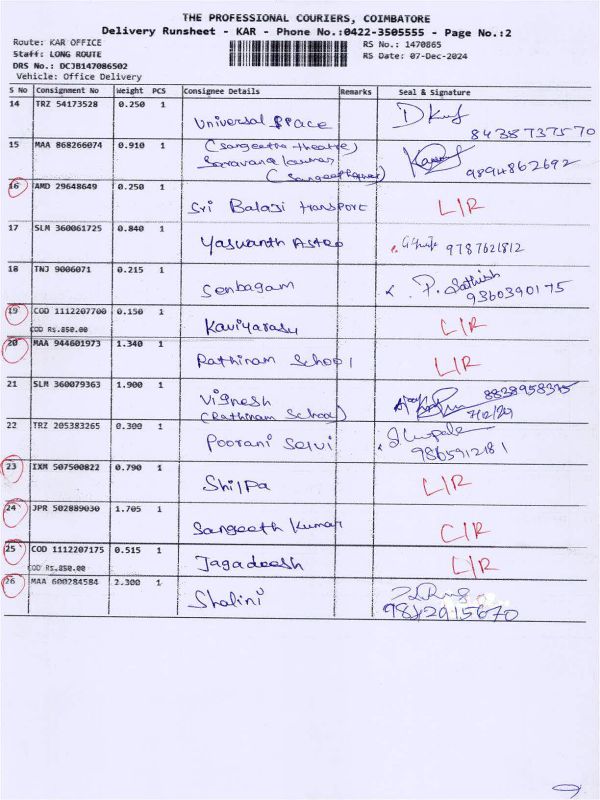 THE PROFESSIONAL COURIERS, COIMBATORE
Delivery Runsheet - KAR - Phone No.:0422-3505555 - Page No.:2
Route: KAR OFFICE RS No.: 1470865
Staff: LONG ROUTE RS Date: 07-Dec-2024
DRS No.: DCJB147086502
Vehicle: Office Delivery
S No Consignment No Weight PCS Consignee Details Remarks Seal & Signature
14 TRZ 54173528 0.250 1
Universal Space
8438737570
15 MAA 868266074 0.910 1 (Sangeetha theatre)
Saravana kumar
9894862692
16 AMD 29648649 0.250 1
Sri Balaji transport L/R
17 SLM 360061725 0.840 1
Yaswanth Astro 9787621812
18 TNJ 9006071 0.215 1
Senbagam P. Sathish
9360390175
19 COD 1112207700 0.150 1
COD Rs.850.00 Kaviyarasu L/R
20 MAA 944601973 1.340 1
Rathinam School L/R
21 SLM 360079363 1.900 1
Vignesh
(Rathinam School) 7/12/24
22 TRZ 205383265 0.300 1
Poorani Selvi 9865912181
23 IXM 507500822 0.790 1
Shilpa L/R
24 JPR 502889030 1.705 1
Sangeeth Kumar C/R
25 COD 1112207175 0.515 1
COD Rs.850.00 Jagadeesh L/R
26 MAA 600284584 2.300 1
Shalini
9842915670